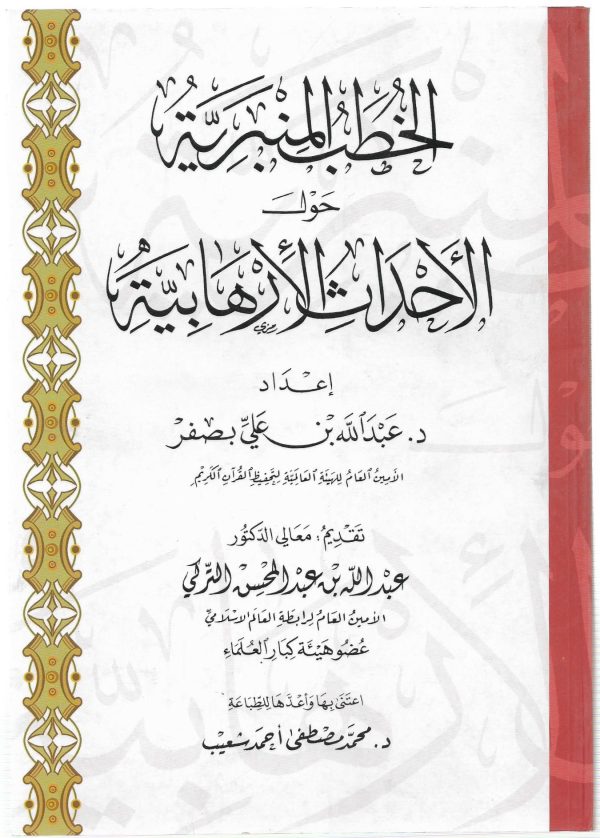 الخُطَبُ المِنبَرِيَّةُ
حَوْلَ
الأَحْدَاثِ الأِرْهَابِيَّةِ
إعْدَاد
د. عَبْدُاللَّه بْن عَلِيّ بَصْفَر
الأَمِينُ العَامُ لِلهَيْئَةِ العَالَمِيَّةِ لِتَحْفِيظِ القُرْآنِ الكَرِيْمِ
تَقْدِيمُ: مَعَالي الدّكتُور
عبدالله بن عبدالمحسن التركي
الأمِينُ العَامُ لِرَابِطَةِ العَالَمِ الإسْلَامِيِّ
عُضُو هَيْئَةِ كِبَارِ العُلَمَاءِ
اعتَنَىٰ بِهَا وَأعَدَّهَا لِلطِّبَاعَةِ
د. محمد مصطفى أحمد شعيب